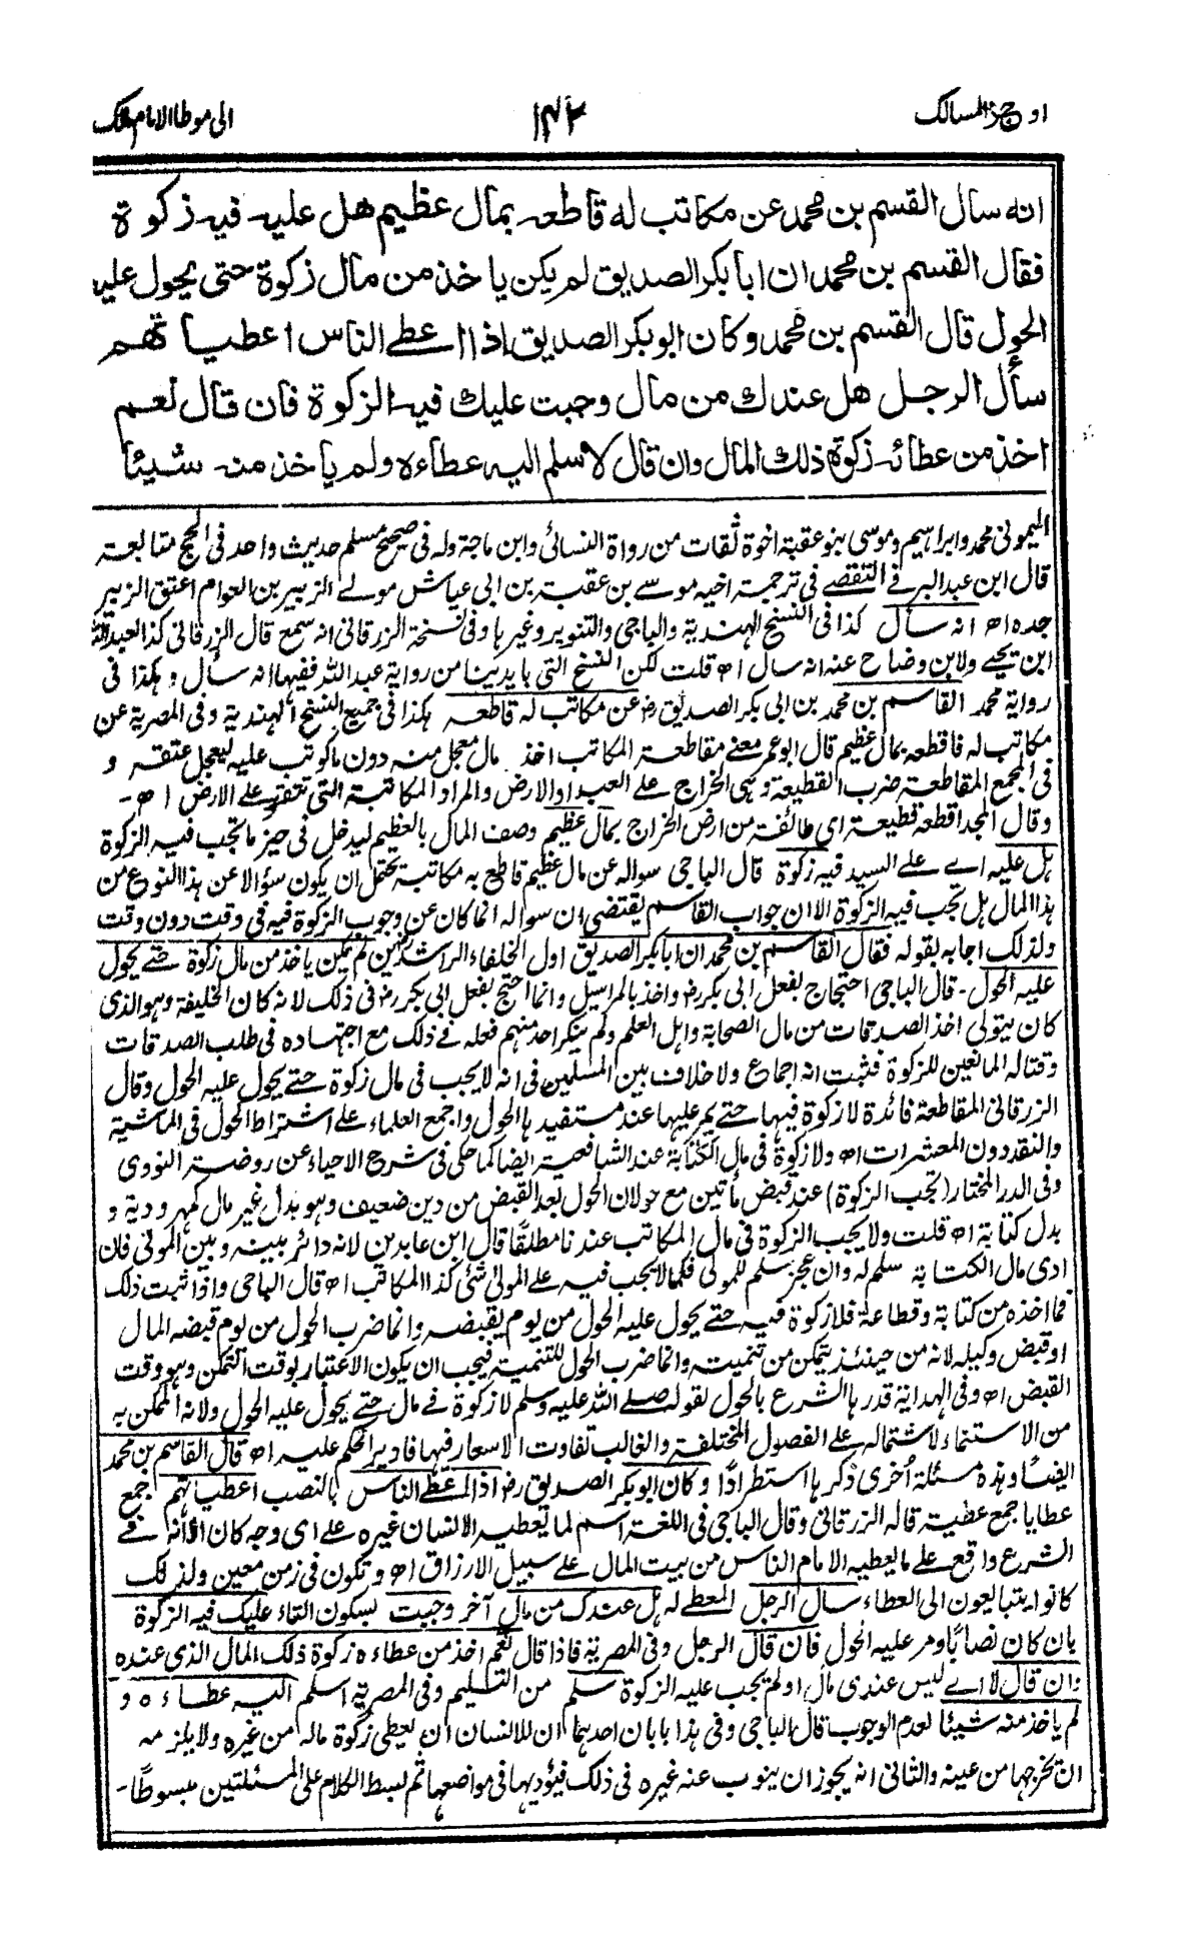 اوجز المسالك
١٤٢
الى موطا الامام مالك
انه سال القسم بن محمد عن مكاتب له قاطعه بمال عظيم هل عليه فيه زكوة
فقال القسم بن محمد ان ابا بكر الصديق لم يكن ياخذ من مال زكوة حتى يحول عليه
الحول قال القسم بن محمد وكان ابو بكر الصديق اذا اعطے الناس اعطياتهم
سأل الرجل هل عندك من مال وجبت عليك فيه الزكوة فان قال نعم
اخذ من عطائه زكوة ذلك المال وان قال لا سلم اليه عطاءه ولم ياخذ منه شيئا
الميمونى محمد وابراهيم وموسى بنو عقبة اخوة ثقات من رواة النسائى وابن ماجة وله فى صحيح مسلم حديث واحد فى الحج متابعة
قال ابن عبدالبر فے التقصے فى ترجمة اخيه موسے بن عقبة بن ابى عياش مولے الزبير بن العوام اعتق الزبير
جده اھ انه سأل كذا فى النسخ الهندية والباجى والتنوير وغيرها وفى نسخة الزرقانى انه سمع قال الزرقانى كذا لعبيد الله
ابن يحيے ولابن وضاح عنه انه سال اھ قلت لكن النسخ التى بايدينا من رواية عبد الله ففيها انه سأل وهكذا فى
رواية محمد القاسم بن محمد بن ابى بكر الصديق رض عن مكاتب له قاطعه هكذا فى جميع النسخ الهندية وفى المصرية عن
مكاتب له فاقطعه بمال عظيم قال ابو عمر معنے مقاطعة المكاتب اخذ مال معجل منه دون ما كوتب عليه ليعجل عتقه و
فى المجمع المقاطعة ضرب القطيعة وهى الخراج علے العبد او الارض والمراد المكاتبة التى تتقرر علے الارض اھ-
وقال المجد اقطعه قطيعة اى طائفة من ارض الخراج بمال عظيم وصف المال بالعظيم ليدخل فى حيز ما تجب فيه الزكوة
هل عليه اے علے السيد فيه زكوة قال الباجى سواله عن مال عظيم قاطع به مكاتبه يحتمل ان يكون سؤالا عن هذا النوع من
هذا المال هل تجب فيه الزكوة الا ان جواب القاسم يقتضى ان سواله انما كان عن وجوب الزكوة فيه فى وقت دون وقت
ولذلك اجابه بقوله فقال القاسم بن محمد ان ابا بكر الصديق اول الخلفاء الراشدين لم يكن ياخذ من مال زكوة حتے يحول
عليه الحول- قال الباجى احتجاج بفعل ابى بكر رض واخذ بالمراسيل وانما احتج بفعل ابى بكر رض فى ذلك لانه كان الخليفة وهو الذى
كان يتولى اخذ الصدقات من مال الصحابة واهل العلم ولم ينكر احد منهم فعله فے ذلك مع اجتهاده فى طلب الصدقات
وقتاله المانعين للزكوة فثبت انه اجماع ولا خلاف بين المسلمين فى انه لا يجب فى مال زكوة حتے يحول عليه الحول وقال
الزرقانى المقاطعة فائدة لا زكوة فيها حتے يمر عليها عند مستفيدها الحول واجمع العلماء علے اشتراط الحول فى الماشية
والنقد دون المعشرات اھ ولا زكوة فى مال الكتابة عند الشافعية ايضا كما حكى فى شرح الاحياء عن روضة النووى
وفى الدر المختار (تجب الزكوة) عند قبض مأتين مع حولان الحول بعد القبض من دين ضعيف وهو بدل غير مال كمهر ودية و
بدل كتابة اھ قلت ولا يجب الزكوة فى مال المكاتب عندنا مطلقًا قال ابن عابدين لانه دائر بينه وبين المولى فان
ادى مال الكتابة سلم له وان عجز سلم للمولى فكما لا يجب فيه علے المولى شئ كذا المكاتب اھ قال الباجى واذا ثبت ذلك
فما اخذه من كتابة وقطاعة فلا زكوة فيه حتے يحول عليه الحول من يوم يقبضه وانما ضرب الحول من يوم قبضه المال
او قبض وكيله لانه من حينئذ يتمكن من تنميته وانما ضرب الحول للتنمية فيجب ان يكون الاعتبار بوقت التمكن وهو وقت
القبض اھ وفى الهداية قدرها الشرع بالحول لقوله صلے الله عليه وسلم لا زكوة فے مال حتے يحول عليه الحول ولانه الممكن به
من الاستنماء لاشتماله علے الفصول المختلفة والغالب تفاوت الاسعار فيها فادير الحكم عليه اھ قال القاسم بن محمد
ايضا وهذه مسئلة اُخرى ذكرها استطرادًا وكان ابو بكر الصديق رض اذا اعطے الناس بالنصب اعطياتهم جمع
عطايا جمع عطية قاله الزرقانى وقال الباجى فى اللغة اسم لما يعطيه الانسان غيره علے اى وجه كان الا انه فے
الشرع واقع علے ما يعطيه الامام الناس من بيت المال علے سبيل الارزاق اھ وتكون فى زمن معين ولذلك
كانوا يتبايعون الى العطاء سأل الرجل المعطے له هل عندك من مال آخر وجبت بسكون التاء عليك فيه الزكوة
بان كان نصابًا ومر عليه الحول فان قال الرجل وفى المصرية فاذا قال نعم اخذ من عطاءه زكوة ذلك المال الذى عنده
وان قال لا اے ليس عندى مال او لم يجب عليه الزكوة سلم من التسليم وفى المصرية اسلم اليه عطاءه و
لم ياخذ منه شيئا لعدم الوجوب قال الباجى وفى هذا بابان احدهما ان للانسان ان يعطى زكوة ماله من غيره ولا يلزمه
ان تخرجها من عينه والثانى انه يجوز ان ينوب عنه غيره فى ذلك فيؤديها فى مواضعها ثم بسط الكلام على المسئلتين مبسوطًا-